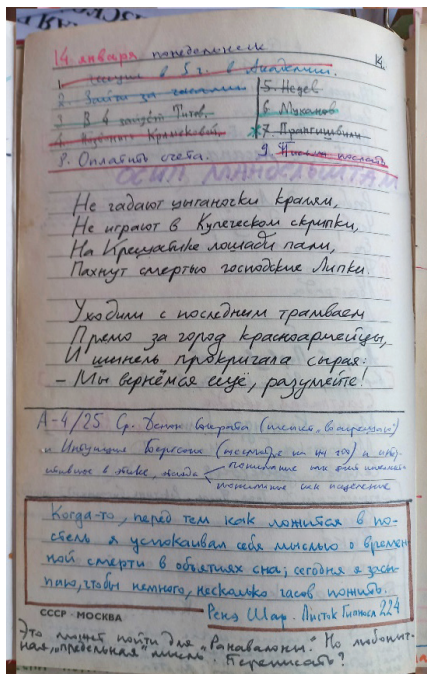 14. января понедельник
14.
1. Лекция в 5 г. в Академии.
2. Зайти за
3. В 4 зайдёт Титов.
4.
5. Недев
6. Муханов
7. Прангишвили
8. Оплатить счета.
9. Письма послать
ОСИП МАНДЕЛЬШТАМ
Не гадают цыганочки кралям,
Не играют в Купеческом скрипки,
На Крещатике лошади пали,
Пахнут смертью господские Липки.
Уходили с последним трамваем
Прямо за город красноармейцы,
И шинель прокричала сырая:
– Мы вернёмся ещё, разумейте!
А-4/25 Ср. Демон Сократа
и Интуиция Бергсона и инту-
итивное в этике, этика
понимание как
понимание как
Когда-то, перед тем как ложится в по-
стель я успокаивал себя мыслью о времен-
ной смерти в объятиях сна; сегодня я засы-
паю, чтобы немного, несколько часов пожить.
Рене Шар. Листок Гипноса 224
СССР · МОСКВА
Это может пойти для „Ранавалоны". Но любопыт-
ная, „предельная" мысль. Переписать?